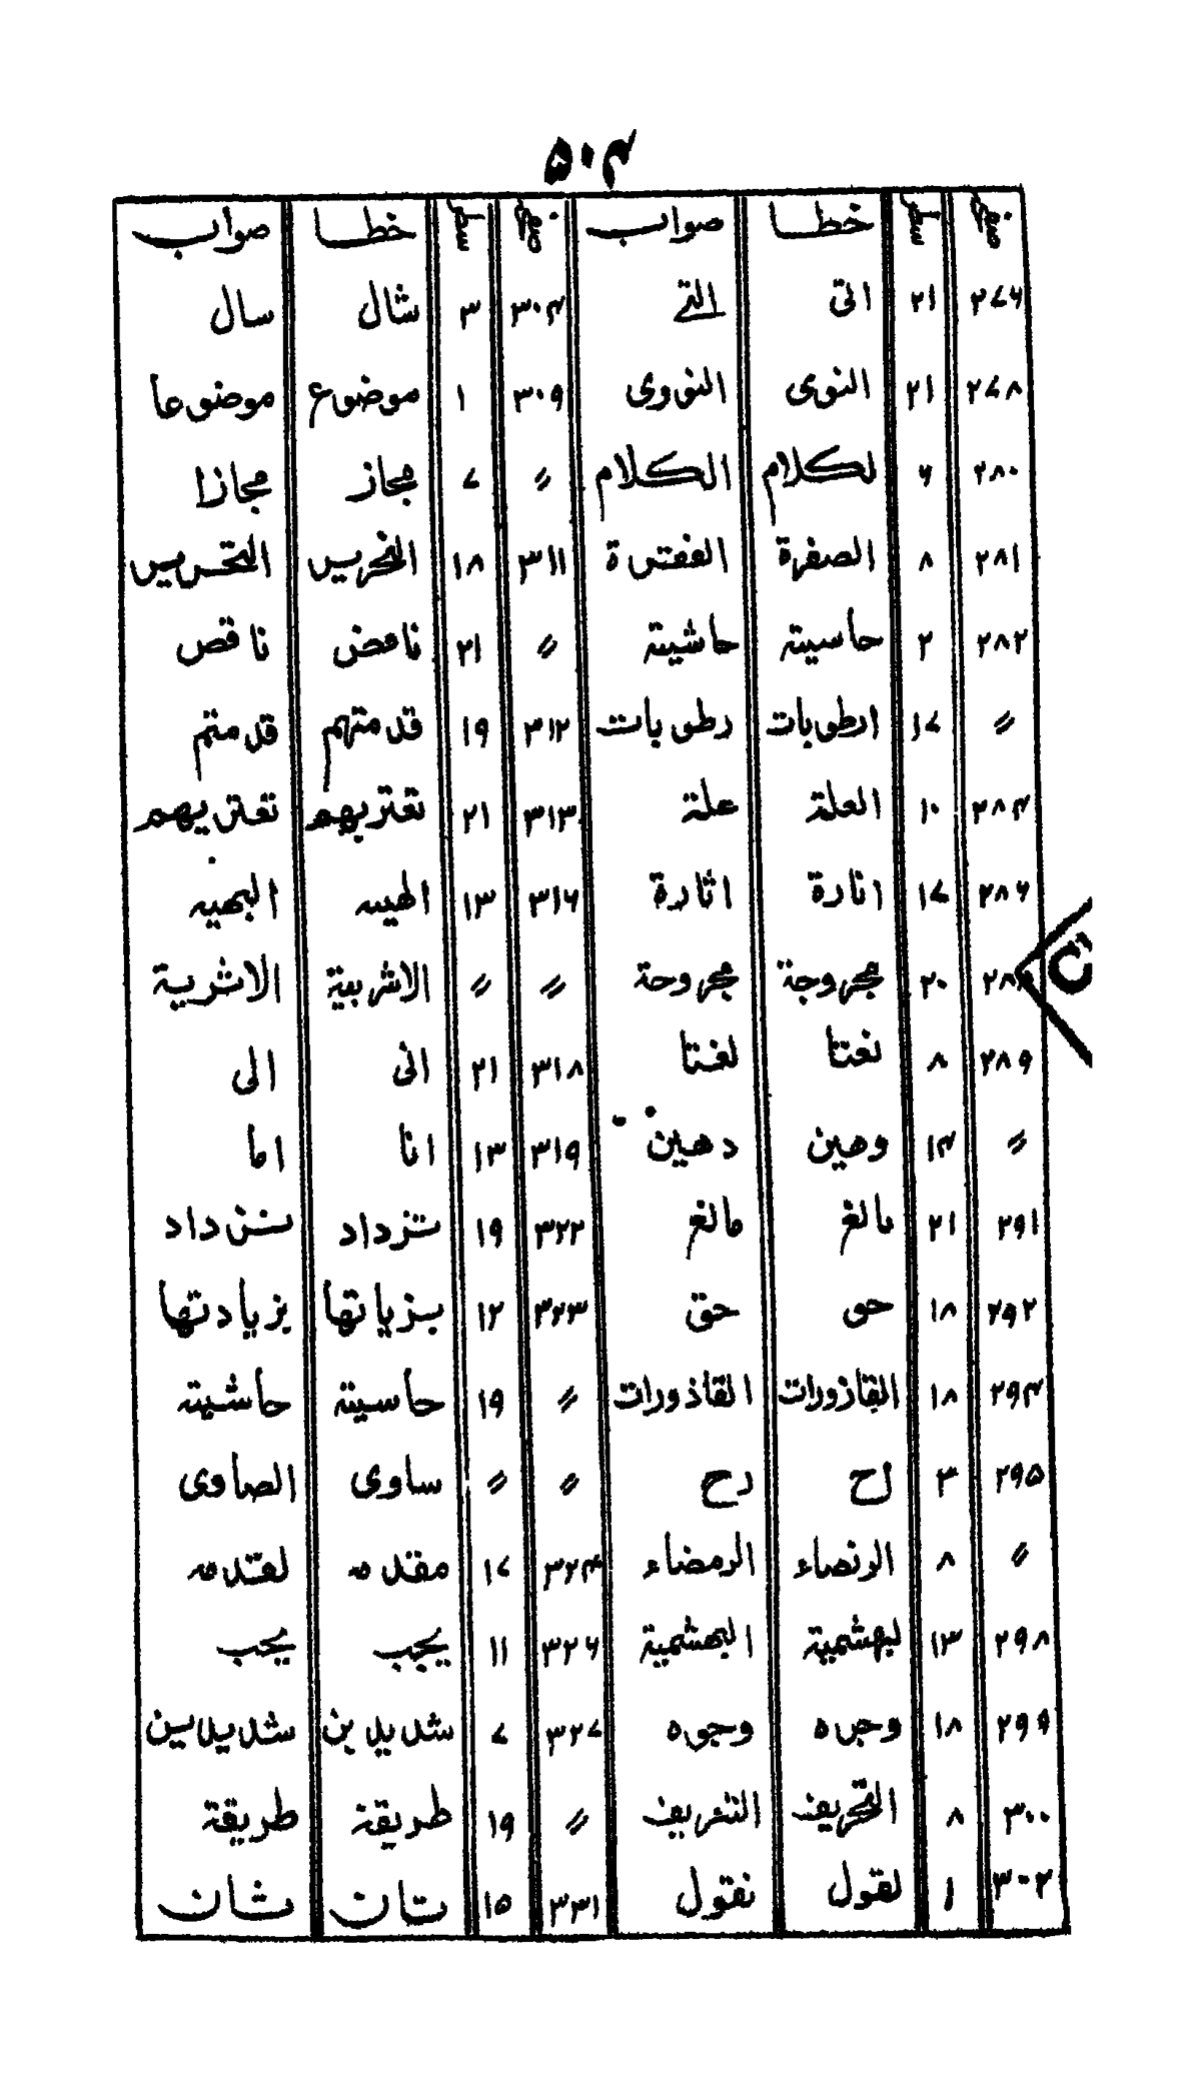 ۵۰۴
صفحہ سطر خطا صواب صفحہ سطر خطا صواب
۲۷۶ ۲۱ اتی التے ۳۰۴ ۳ شال سال
۲۷۸ ۲۱ النوی النووی ۳۰۹ ۱ موضوع موضوعا
۲۸۰ ۶ لکلام الکلام 〃 ۷ مجاز مجازا
۲۸۱ ۸ الصفرة ۳۱۱ ۱۸
۲۸۲ ۲ حاسیتہ حاشیتہ 〃 ۲۱ ناقص
〃 ۱۷ ارطوبات رطوبات ۳۱۲ ۱۹ قدمتهم قدمتم
۲۸۴ ۱۰ العلتہ علتہ ۳۱۳ ۲۱ تعتریهم
۲۸۶ ۱۷ انارة اثارة ۳۱۶ ۱۳
۲۸۸ ۲۰ مجروجة مجروحة 〃 〃 الاشربیة الاشریة
۲۸۹ ۸ نعتا لغتا ۳۱۸ ۲۱ انی الی
〃 ۱۴ وهین دهین ۳۱۹ ۱۳ انا اما
۲۹۱ ۲۱ بالغ مالغ ۳۲۲ ۱۹ تزداد
۲۹۲ ۱۸ حی حق ۳۲۳ ۱۲ بزیاتها بزیادتها
۲۹۴ ۱۸ القازورات القاذورات 〃 ۱۹ حاسیتہ حاشیتہ
۲۹۵ ۳ لح رح 〃 〃 ساوی الصاوی
〃 ۸ الرنصاء الرمضاء ۳۲۴ ۱۷ مقتدمہ
۲۹۸ ۱۳ لبهشمیة البهشمیة ۳۲۶ ۱۱ یجب
۲۹۹ ۱۸ وجوہ ۳۲۷ ۷ شدیدین
۳۰۰ ۸ التحریف التعریف 〃 ۱۹ طریقة
۳۰۲ ۱ لقول نقول ۳۳۱ ۱۵ تان شان
ت